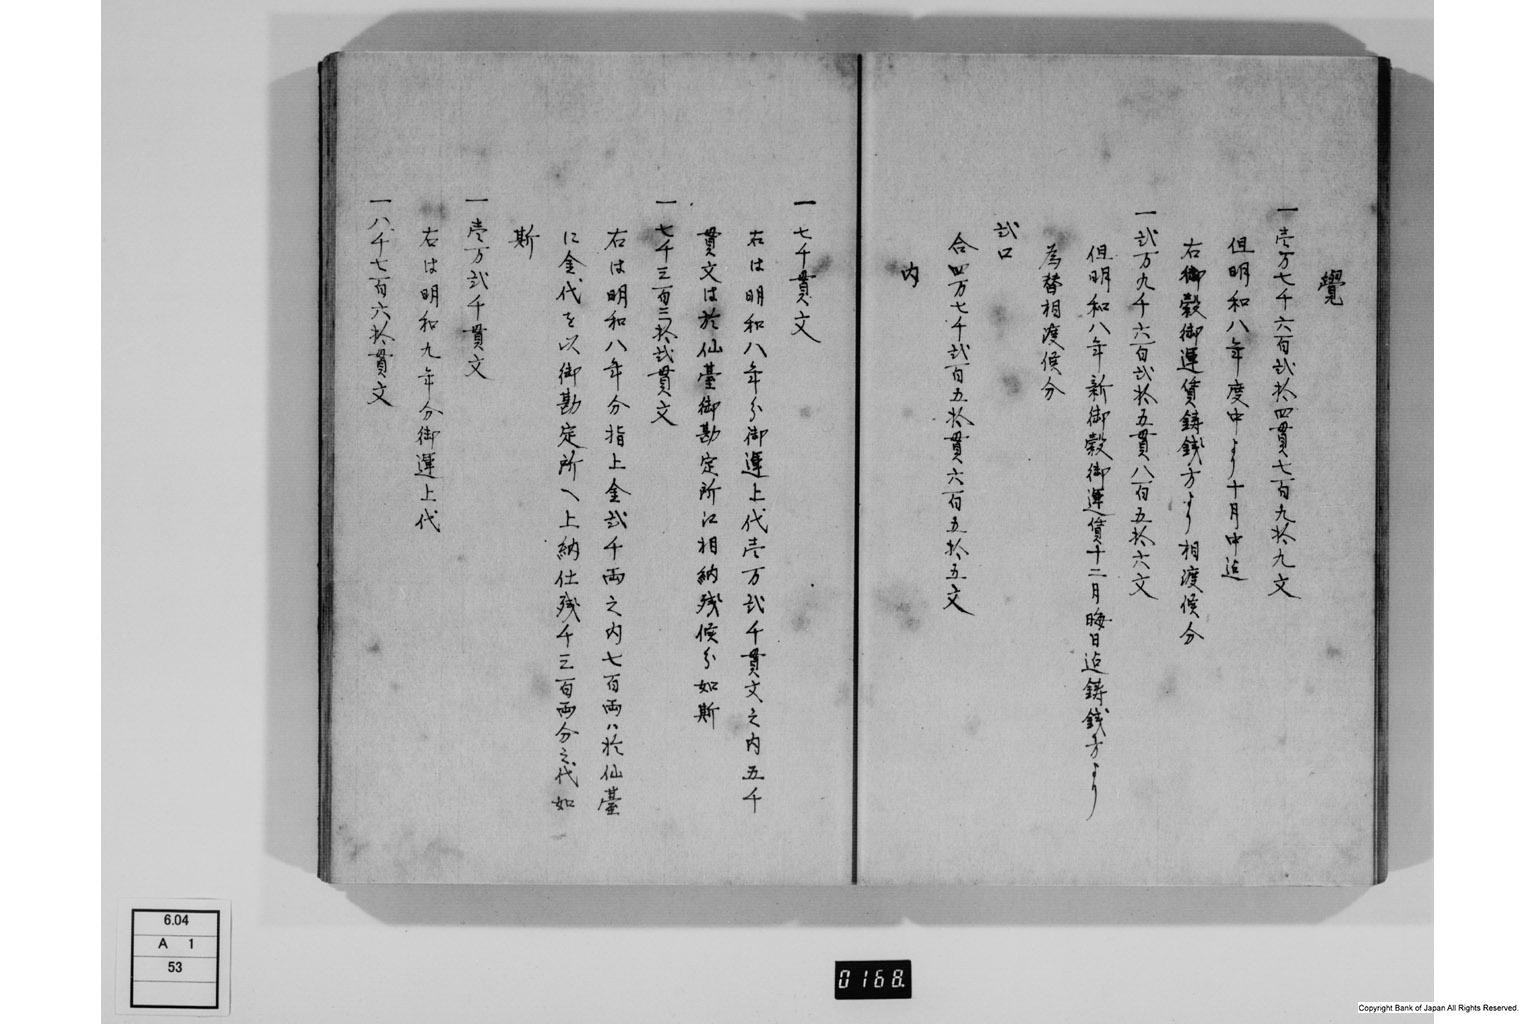 覺
一壱万七千六百弐拾四貫七百九拾九文
但明和八年度中より十月中迄
右御穀御運賃鋳銭方より相渡候分
一弐万九千六百弐拾五貫八百五拾六文
但明和八年新御穀御運賃十二月晦日迄鋳銭方より
為替相渡候分
弐口
合四万七千弐百五拾貫六百五拾五文
内
一七千貫文
右は明和八年分御運上代壱万弐千貫文之内五千
貫文は於仙臺御勘定所江相納残候分如斯
一七千三百三拾弐貫文
右は明和八年分指上金弐千両之内七百両ハ於仙臺
に金代を以御勘定所へ上納仕残千三百両分之代如
斯
一壱万弐千貫文
右は明和九年分御運上代
一八千七百六拾貫文
6.04
A 1
53
0168.
Copyright Bank of Japan All Rights Reserved.